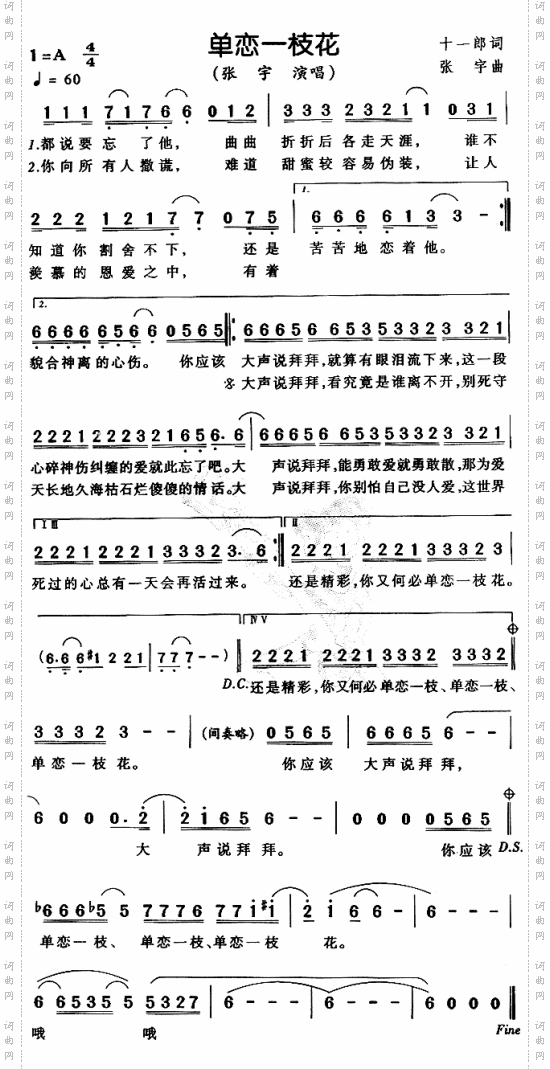 单恋一枝花
（张 宇 演唱）
十一郎 词
张 宇 曲
1=A 4/4
♩= 60
1 1 1 7 1 7 6 6 0 1 2 | 3 3 3 2 3 2 1 1 0 3 1 |
1.都说要 忘 了他， 曲曲 折折后 各走天涯， 谁不
2.你向所 有人 撒谎， 难道 甜蜜较 容易伪装， 让人
2 2 2 1 2 1 7 7 0 7 5 | 1. 6 6 6 6 1 3 3 - :‖
知道你 割舍不下， 还是 苦苦地 恋着他。
羡慕的 恩爱之中， 有着
2.
6 6 6 6 6 5 6 6 0 5 6 5 :‖: 6 6 6 5 6 6 5 3 5 3 3 2 3 3 2 1 |
貌合神离的心伤。 你应该 大声说拜拜，就算有眼泪流下来，这一段
𝄋 大声说拜拜，看究竟是谁离不开，别死守
2 2 2 1 2 2 2 3 2 1 6 5 6. 6 | 6 6 6 5 6 6 5 3 5 3 3 2 3 3 2 1
心碎神伤纠缠的爱就此忘了吧。大 声说拜拜，能勇敢爱就勇敢散，那为爱
天长地久海枯石烂傻傻的情话。大 声说拜拜，你别怕自己没人爱，这世界
I III II
2 2 2 1 2 2 2 1 3 3 3 2 3. 6 :‖ 2 2 2 1 2 2 2 1 3 3 3 2 3 |
死过的心总有一天会再活过来。 还是精彩，你又何必单恋一枝花。
IV V
(6. 6 6 #1 2 2 1 | 7 7 7 - -) ‖ 2 2 2 1 2 2 2 1 3 3 3 2 3 3 3 2 ‖
D.C. 还是精彩，你又何必单恋一枝、单恋一枝、
3 3 3 2 3 - - | （间奏略） 0 5 6 5 | 6 6 6 5 6 - -
单恋一枝花。 你应该 大声说拜拜，
6 0 0 0. 2 | 2 1 6 5 6 - - | 0 0 0 0 5 6 5 ‖
大 声说拜拜。 你应该 D.S.
♭6 6 6 ♭5 5 7 7 7 6 7 7 1 #1 | 2 1 6 6 - | 6 - - -
单恋一枝、 单恋一枝、单恋一枝 花。
6 6 5 3 5 5 5 3 2 7 | 6 - - - | 6 - - - | 6 0 0 0 ‖
哦 哦 Fine